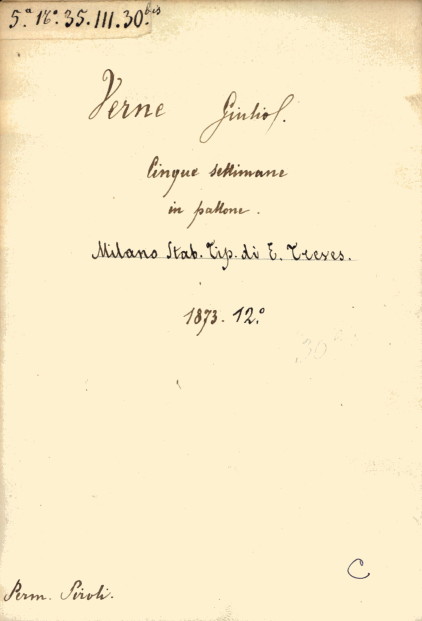 5.ª 12.º 35.III.30.bis
Verne Giulio.
Cinque settimane
in pallone.
Milano Stab. Tip. di E. Treves.
1873. 12.º
C
Perm. Piroli.